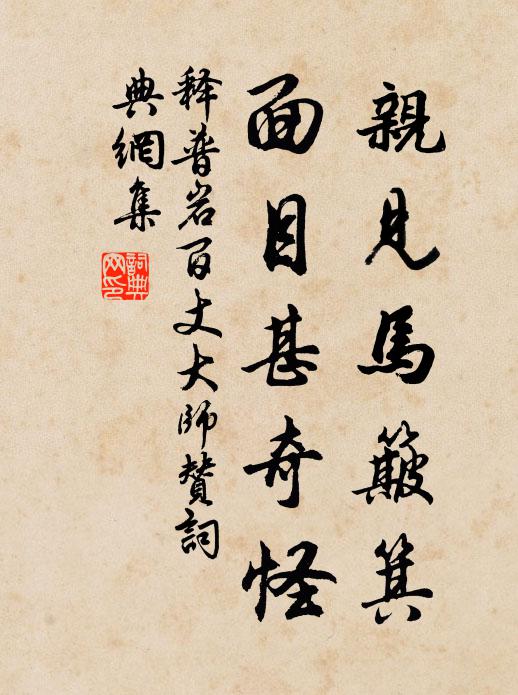 親見馬簸箕
面目甚奇怪
释普岩百丈大師贊詞
典網集
詞典網印